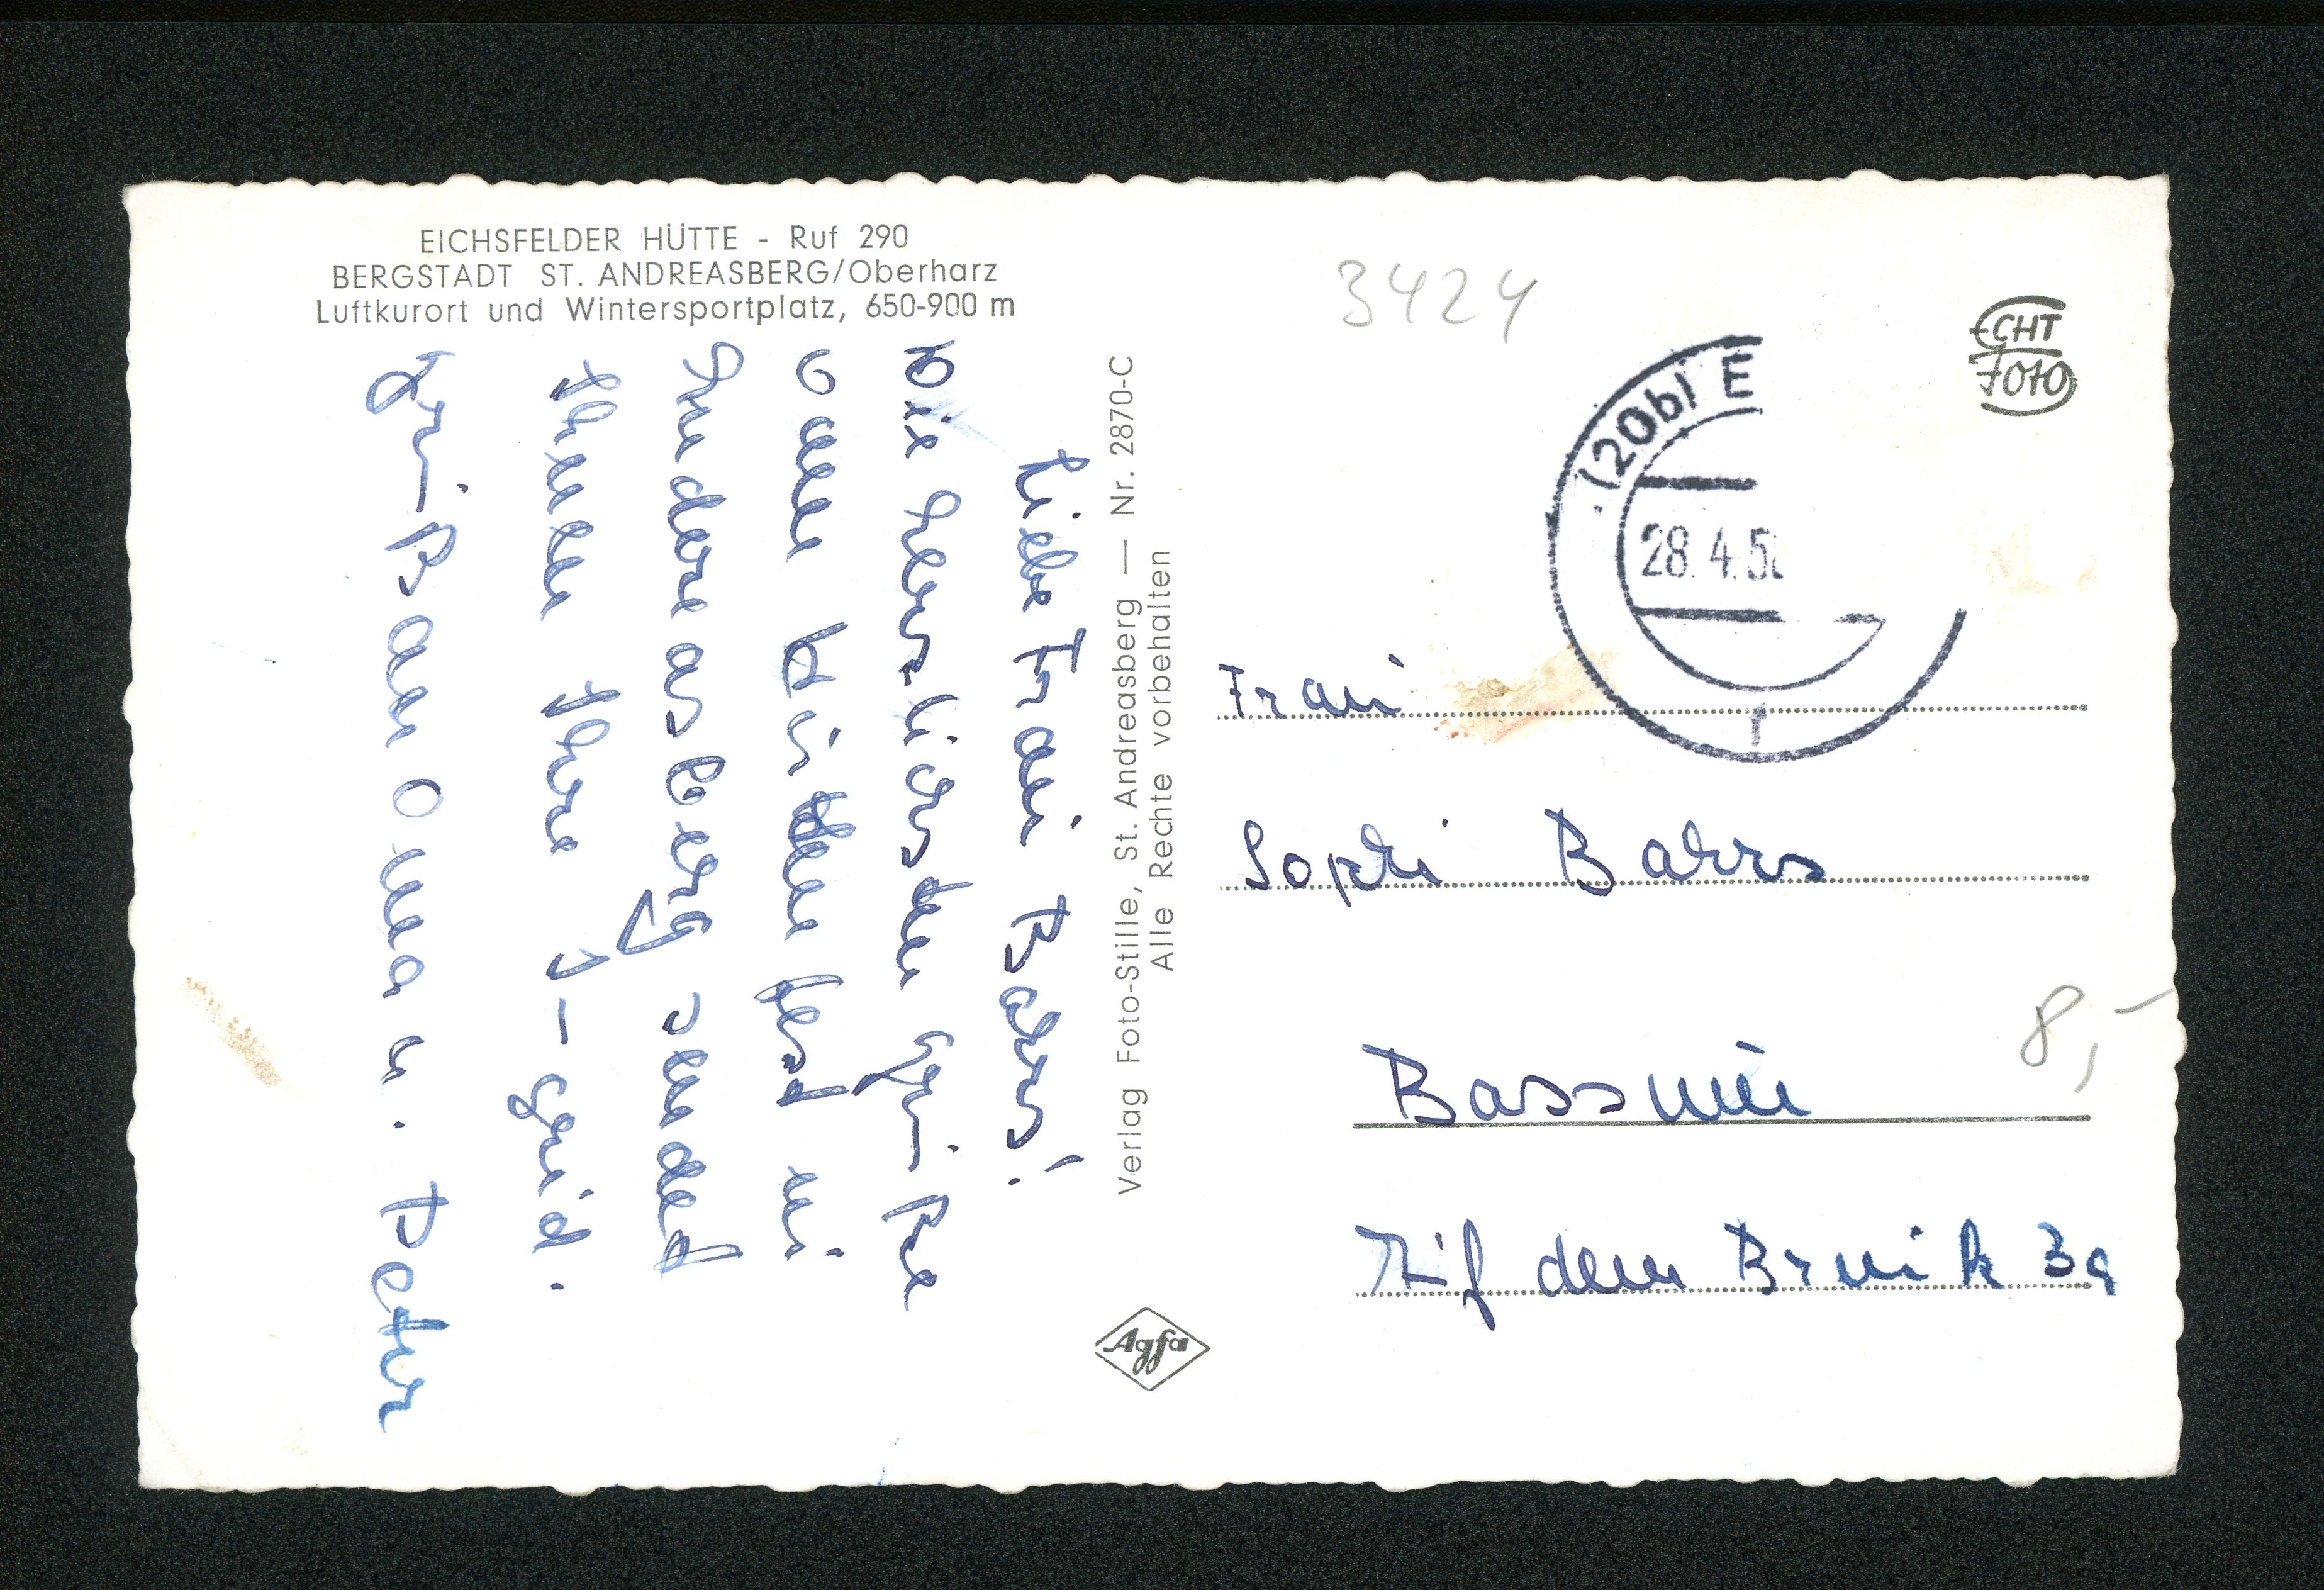 EICHSFELDER HÜTTE - Ruf 290
BERGSTADT ST. ANDREASBERG/Oberharz
Luftkurort und Wintersportplatz, 650-900 m
Liebe Frau Bahrs!
Die herzlichsten Grüße
vom
Andreasberg sendet
Ihnen Ihre
Gruß an Oma u. Peter
Verlag Foto-Stille, St. Andreasberg — Nr. 2870-C
Alle Rechte vorbehalten
Agfa
3424
ECHT
FOTO
(20b) E
28.4.5
1
Frau
Sophi Bahrs
Bassum
8,-
Auf dem Bruik 3a